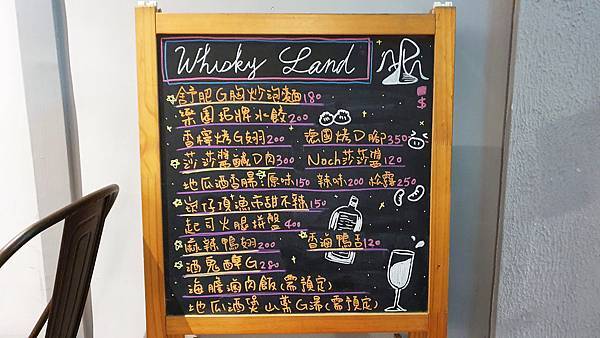 Whisky Land
$
舒肥G胸炒泡麵180
樂園招牌水餃200
香檸烤G翅200 德國烤D腳350
莎莎醬鹹D肉300 Nach莎莎醬120
地瓜酒香腸:原味150 辣味200 松露250
炭仔頂漁市甜不辣150
起司火腿拼盤400
麻辣鴨翅200 香滷鴨舌120
酒鬼醉G280
海膽滷肉飯(需預定)
地瓜酒煲山藥G湯(需預定)